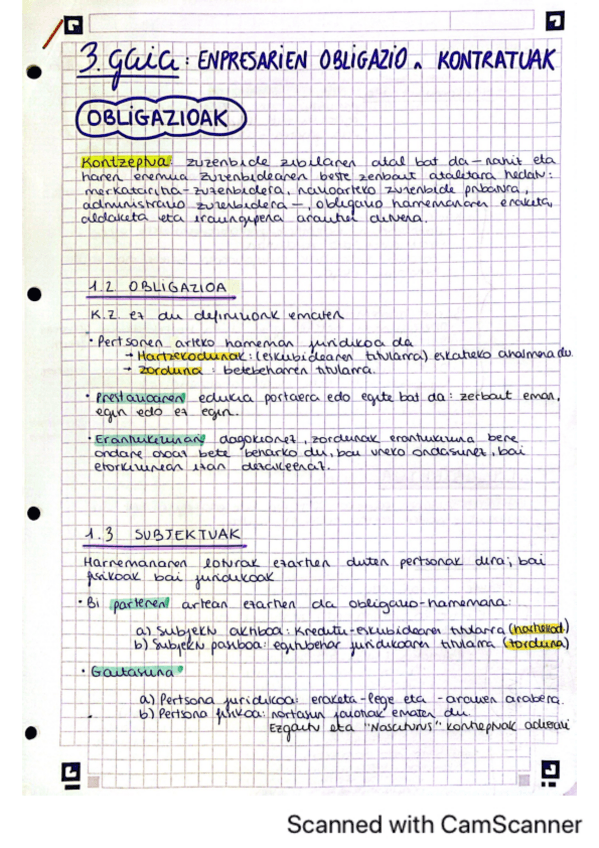 3. gaia: ENPRESARIEN OBLIGAZIO KONTRATUAK
OBLIGAZIOAK
Kontzeptua: zuzenbide zibilaren atal bat da - nahiz eta
haren eremua zuzenbidearen beste zenbait ataletara hedatu:
merkataritza-zuzenbidera, nazioarteko zuzenbide pribatura,
administrazio zuzenbidera -, obligazio harremanaren eraketa,
aldaketa eta iraungipena arautzen dituena.
1.2 OBLIGAZIOA
K.Z ez du definiziorik ematen
· Pertsonen arteko harreman juridikoa da
→ Hartzekodunak: (eskubidearen titularra) eskatzeko ahalmena du
→ zorduna: betebeharren titularra.
· Prestazioaren edukia portaera edo egite bat da: zerbait eman,
egin edo ez egin.
· Erantzukizunari dagokionez, zordunak erantzukizuna bere
ondare osoaz bete beharko du, bai uneko ondasunez, bai
etorkizunean izan dezakeenaz.
1.3 SUBJEKTUAK
Harremanaren loturak ezartzen duten pertsonak dira; bai
fisikoak bai juridikoak
· Bi parteren artean ezartzen da obligazio-harremana:
a) Subjektu aktiboa: kreditu-eskubidearen titularra (hartzekod.)
b) Subjektu pasiboa: eginbehar juridikoaren titularra (zorduna)
· Gaitasuna
a) Pertsona juridikoa: eraketa-lege eta -arauen arabera.
b) Pertsona fisikoa: nortasun jaiotzak ematen du.
Ezgaitu eta "Nasciturus" kontzeptuak adierazi
Scanned with CamScanner